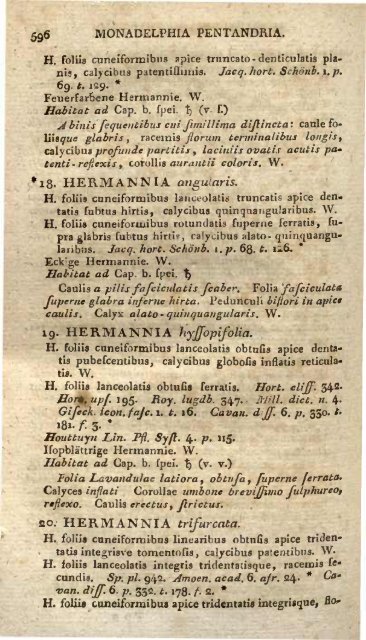 596 MONADELPHIA PENTANDRIA.
H. foliis cuneiformibus apice truncato-denticulatis pla-
nis, calycibus patentiſſimis. Jacq. hort. Schönb. 1. p.
69. t. 129. *
Feuerfarbene Hermannie. W.
Habitat ad Cap. b. ſpei. ♄ (v. ſ.)
A binis ſequentibus cui ſimillima diſtincta: caule fo-
liisque glabris, racemis florum terminalibus longis,
calycibus profunde partitis, laciniis ovatis acutis pa-
tenti-reflexis, corollis aurantii coloris. W.
*18. HERMANNIA angularis.
H. foliis cuneiformibus lanceolatis truncatis apice den-
tatis ſubtus hirtis, calycibus quinquangularibus. W.
H. foliis cuneiformibus rotundatis ſuperne ſerratis, ſu-
pra glabris ſubtus hirtis, calycibus alato-quinquangu-
laribus. Jacq. hort. Schönb. 1. p. 68. t. 126. *
Eckige Hermannie. W.
Habitat ad Cap. b. ſpei. ♄
Caulis a pilis faſciculatis ſcaber. Folia faſciculata
ſuperne glabra inferne hirta. Pedunculi biflori in apice
caulis. Calyx alato-quinquangularis. W.
19. HERMANNIA hyſſopifolia.
H. foliis cuneiformibus lanceolatis obtuſis apice denta-
tis pubeſcentibus, calycibus globoſis inflatis reticula-
tis. W.
H. foliis lanceolatis obtuſis ſerratis. Hort. cliff. 342.
Hort. upſ. 195. Roy. lugdb. 347. Mill. dict. n. 4.
Giſeck. icon. faſc. 1. t. 16. Cavan. diſſ. 6. p. 330. t.
181. f. 3. *
Houttuyn Lin. Pfl. Syſt. 4. p. 115.
Iſopblättrige Hermannie. W.
Habitat ad Cap. b. ſpei. ♄ (v. v.)
Folia Lavandulae latiora, obtuſa, ſuperne ſerrata.
Calyces inflati Corollae umbone breviſſimo ſulphureo,
reflexo. Caulis erectus, ſtrictus.
20. HERMANNIA trifurcata.
H. foliis cuneiformibus linearibus obtuſis apice triden-
tatis integrisve tomentoſis, calycibus patentibus. W.
H. foliis lanceolatis integris tridentatisque, racemis ſe-
cundis. Sp. pl. 942. Amoen. acad. 6. afr. 24. * Ca-
van. diſſ. 6. p. 332. t. 178. f. 2. *
H. foliis cuneiformibus apice tridentatis integrisque, flo-